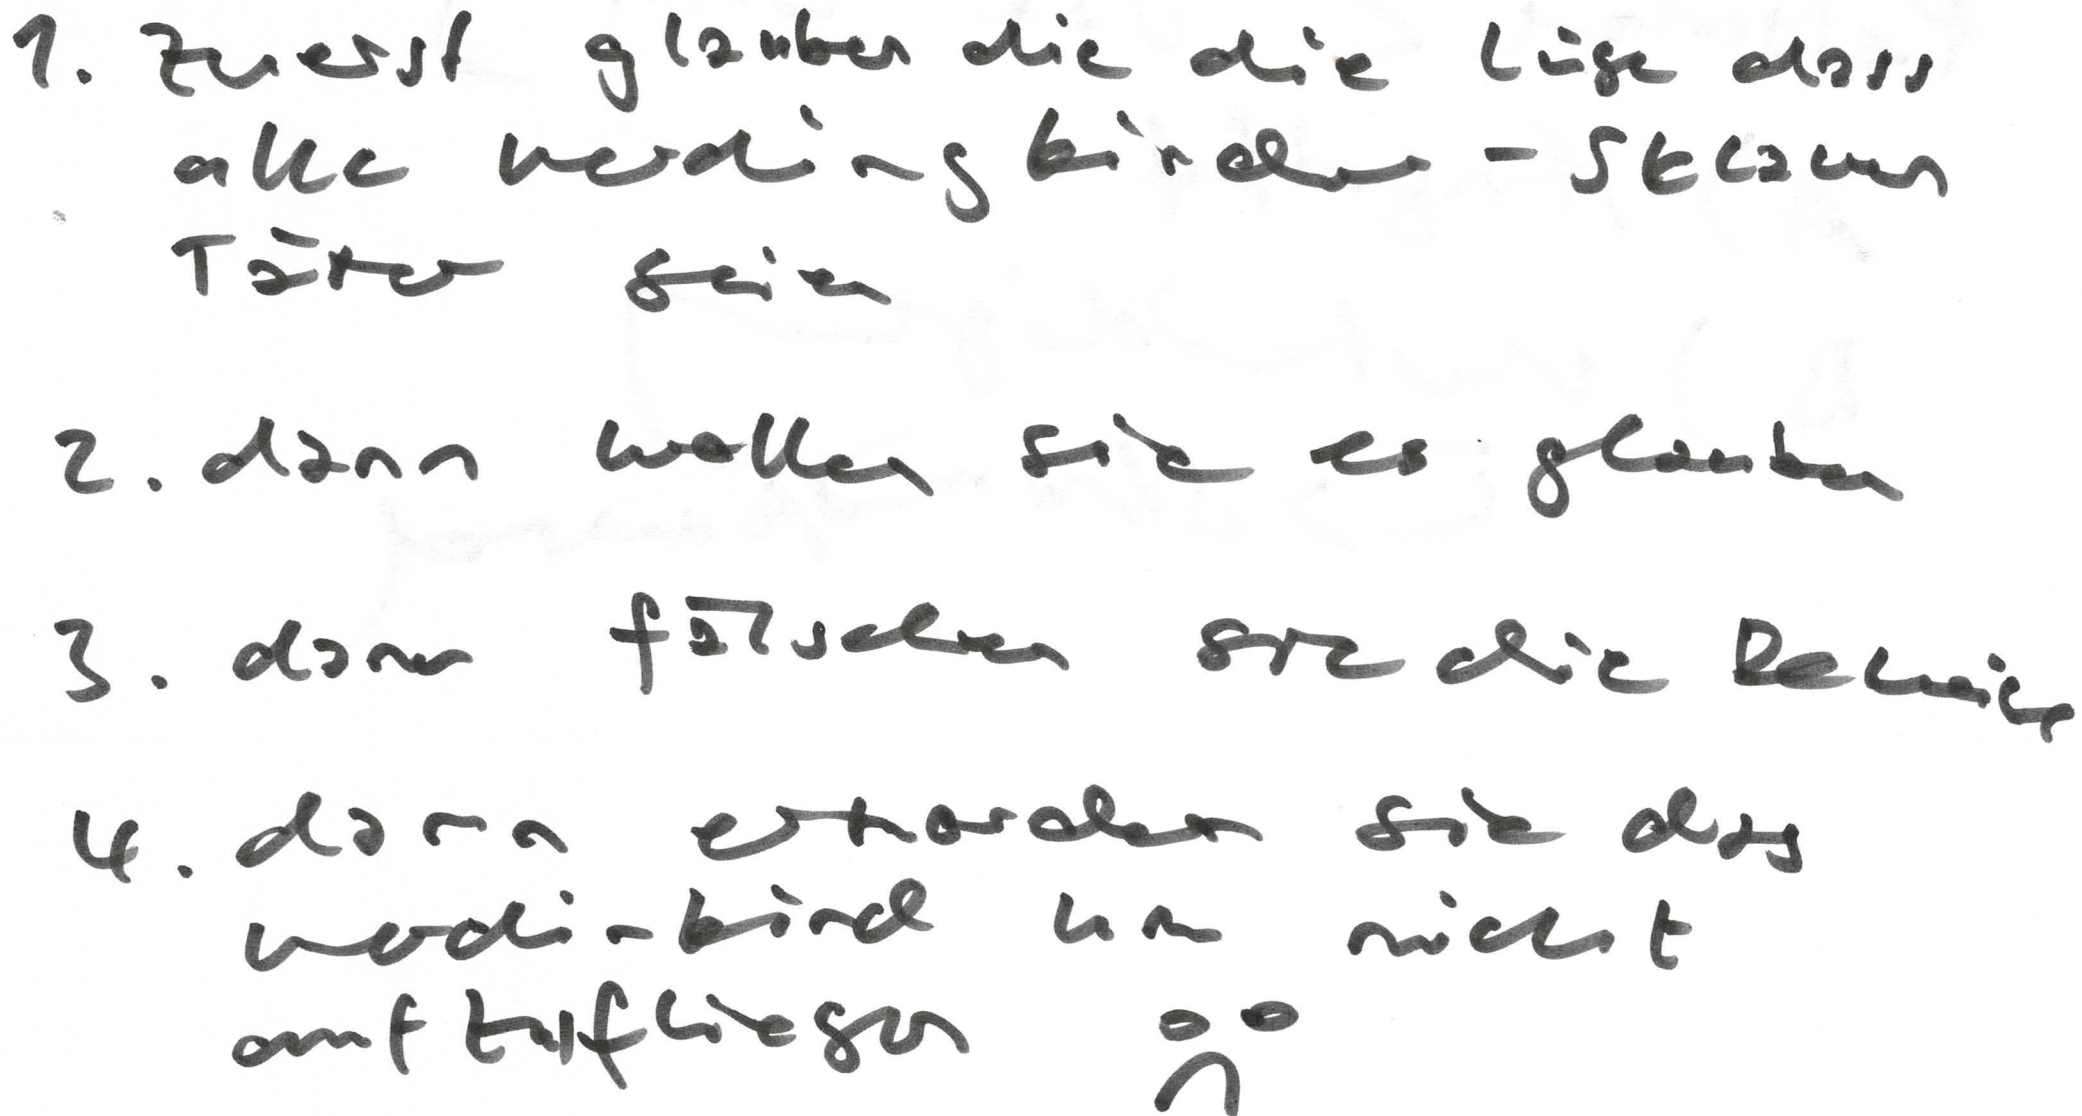 1. Zuerst glauben die die Lüge dass
alle verdingkinder - Sklaven
Täter seien
2. dann wollen sie es glauben
3. dann fälschen sie die Beweise
4. dann ermorden sie das
verdingkind um nicht
aufzufliegen